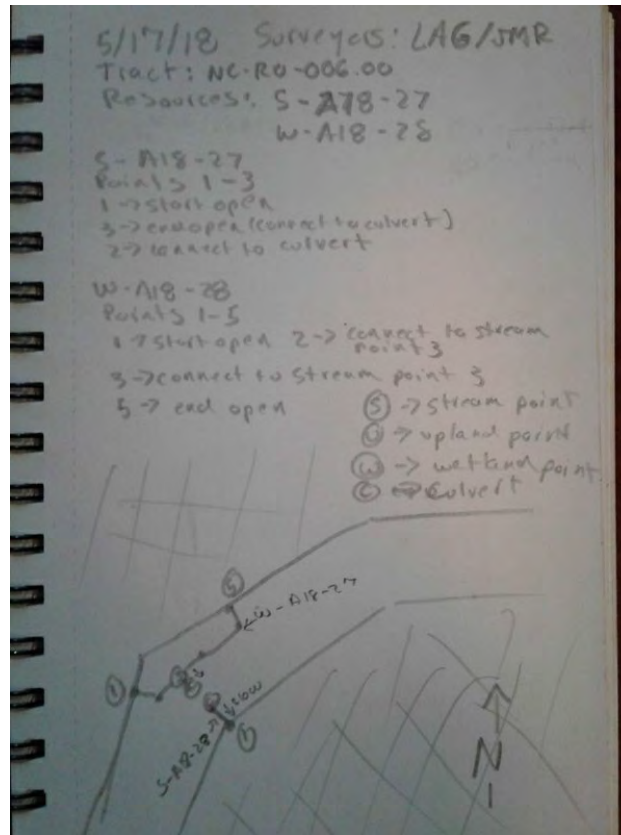 5/17/18 Surveyors: LAG/JMR
Tract: NC-RO-006.00
Resources: S-A18-27
W-A18-28
S-A18-27
Points 1-3
1->start open
3->end open (connect to culvert)
2->connect to culvert
W-A18-28
Points 1-5
1->start open 2-> connect to stream point 3
3->connect to stream point 3
5-> end open
S -> stream point
U -> upland point
W -> wetland point
C -> culvert
5
W-A18-27
1
flow
S-A18-28
1
N